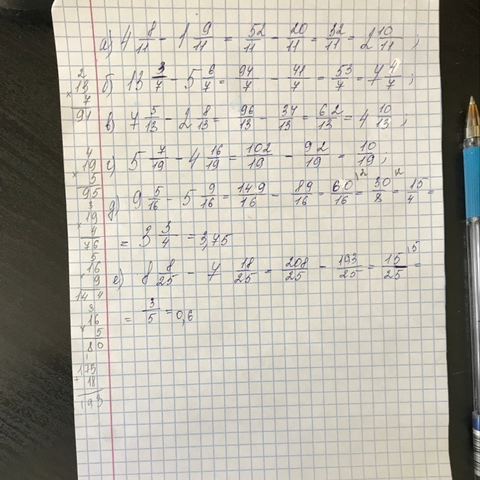 а) 4 8/11 - 1 9/11 = 52/11 - 20/11 = 32/11 = 2 10/11;
б) 13 3/7 - 5 6/7 = 94/7 - 41/7 = 53/7 = 7 4/7;
в) 7 5/13 - 2 8/13 = 96/13 - 34/13 = 62/13 = 4 10/13;
г) 5 7/19 - 4 16/19 = 102/19 - 92/19 = 10/19;
д) 9 5/16 - 5 9/16 = 149/16 - 89/16 = 60/16 = 30/8 = 15/4 =
= 3 3/4 = 3,75
е) 8 8/25 - 7 18/25 = 208/25 - 193/25 = 15/25 =
= 3/5 = 0,6
2
× 13
7
91
4
× 19
5
95
3
19
4
76
5
16
9
144
3
16
5
80
1
175
+ 18
193